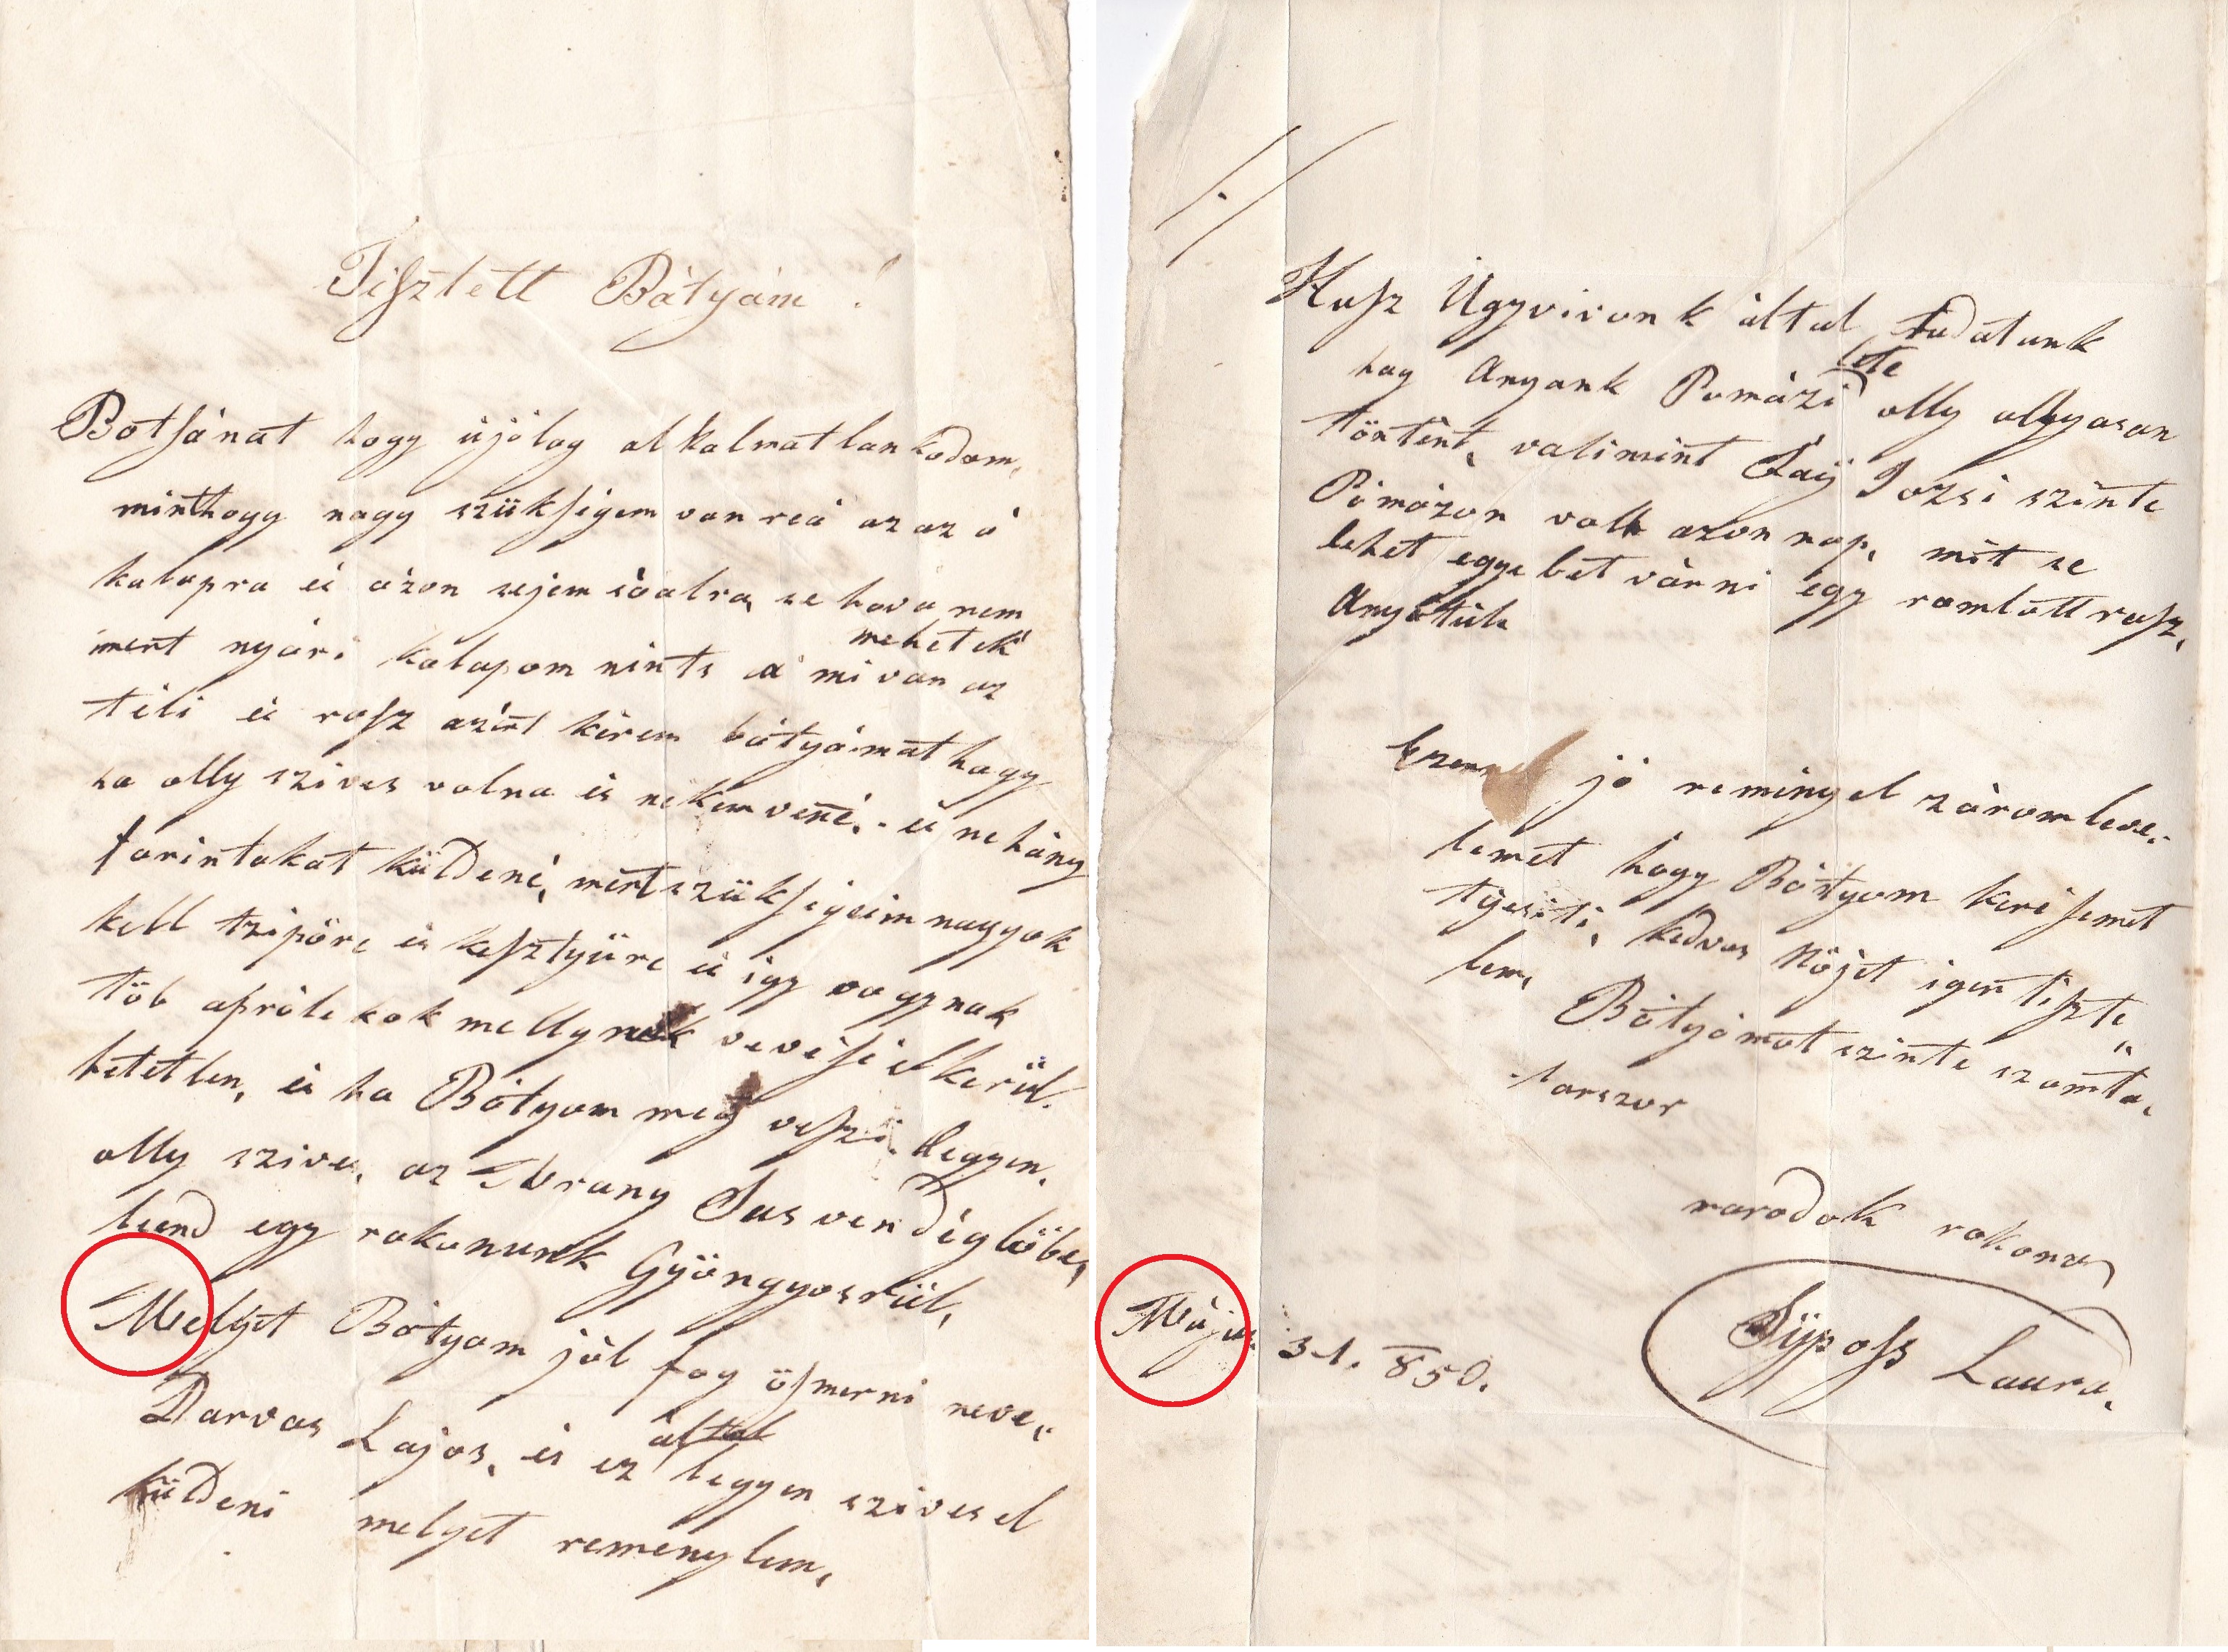 Tisztelt Bátyám!
Botsánat hogy újolag alkalmatlankodom,
minthogy nagy szükségem van reá az az á
kalapra és ázon sejem sáalra, se hova nem
mehetek
mert nyári kalapom nints a mi van az
téli és rosz azért kérem bátyámat hagy
ha olly szíves volna és nekem venné, - és nehány
forintokat küldeni, mert szükségeim nagyok
kell tzipőre és kesztyüre és így vagynak
töb aprólekok mellynek vevése elkerül-
hetetlen, és ha Bátyam meg veszi legyen
olly szíves, az Arany Sas vendéglőbe,
leend egy rokonunk Gyöngyösrül,
Melyet Bátyam jól fog ösmerni neve,,
Darvas Lajos, és ez által legyen szíves el
küldeni melyet reménylem,
Husz Ügyvivönk által tudatunk
hogy Anyank Pomázi léte olly ollyasan
történt, valimint Fáÿ Jozsi szinte
Pómázon volt azon nap, mit se
lehet egyebet várni egy romlott rosz,
Anyátúl
Ezennel jó reményel zárom leve,,
lemet hogy Bátyam kerésemet
tejesiti, kedves Nőjét igen tiszte,,
lem,
Bátyámat szinte számta,,
lanszor
maradok rokona
Május 31. 850.
Sÿposs Laura.